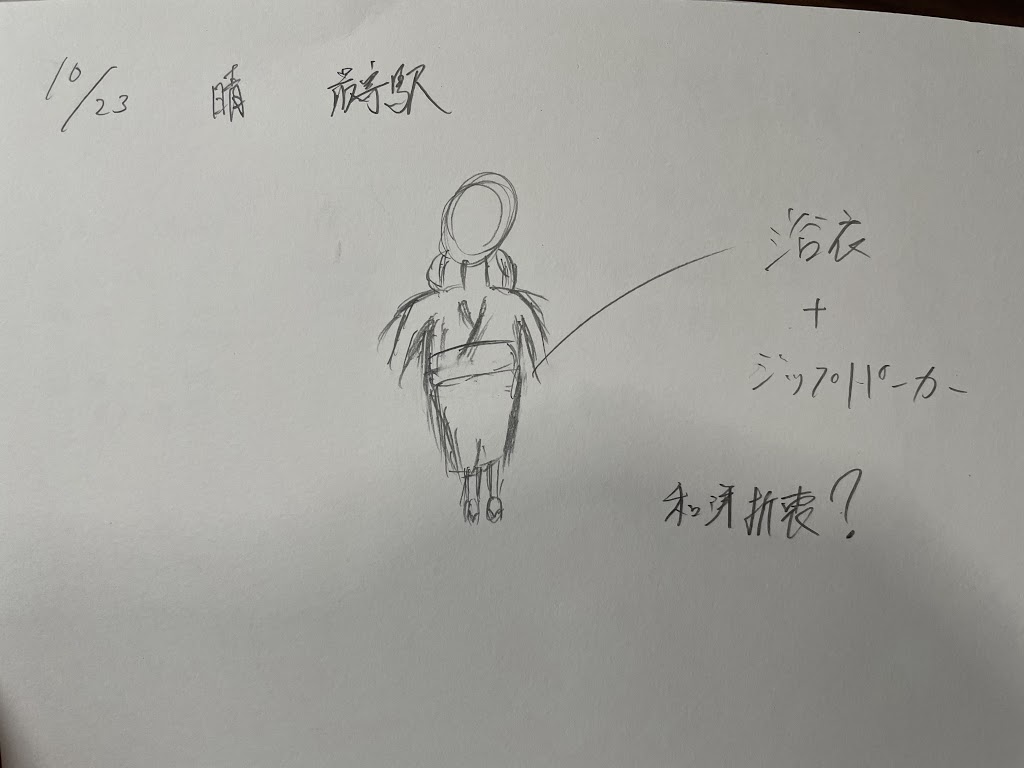 10/23 晴 最寄駅
浴衣
+
ジップパーカー
和洋折衷?